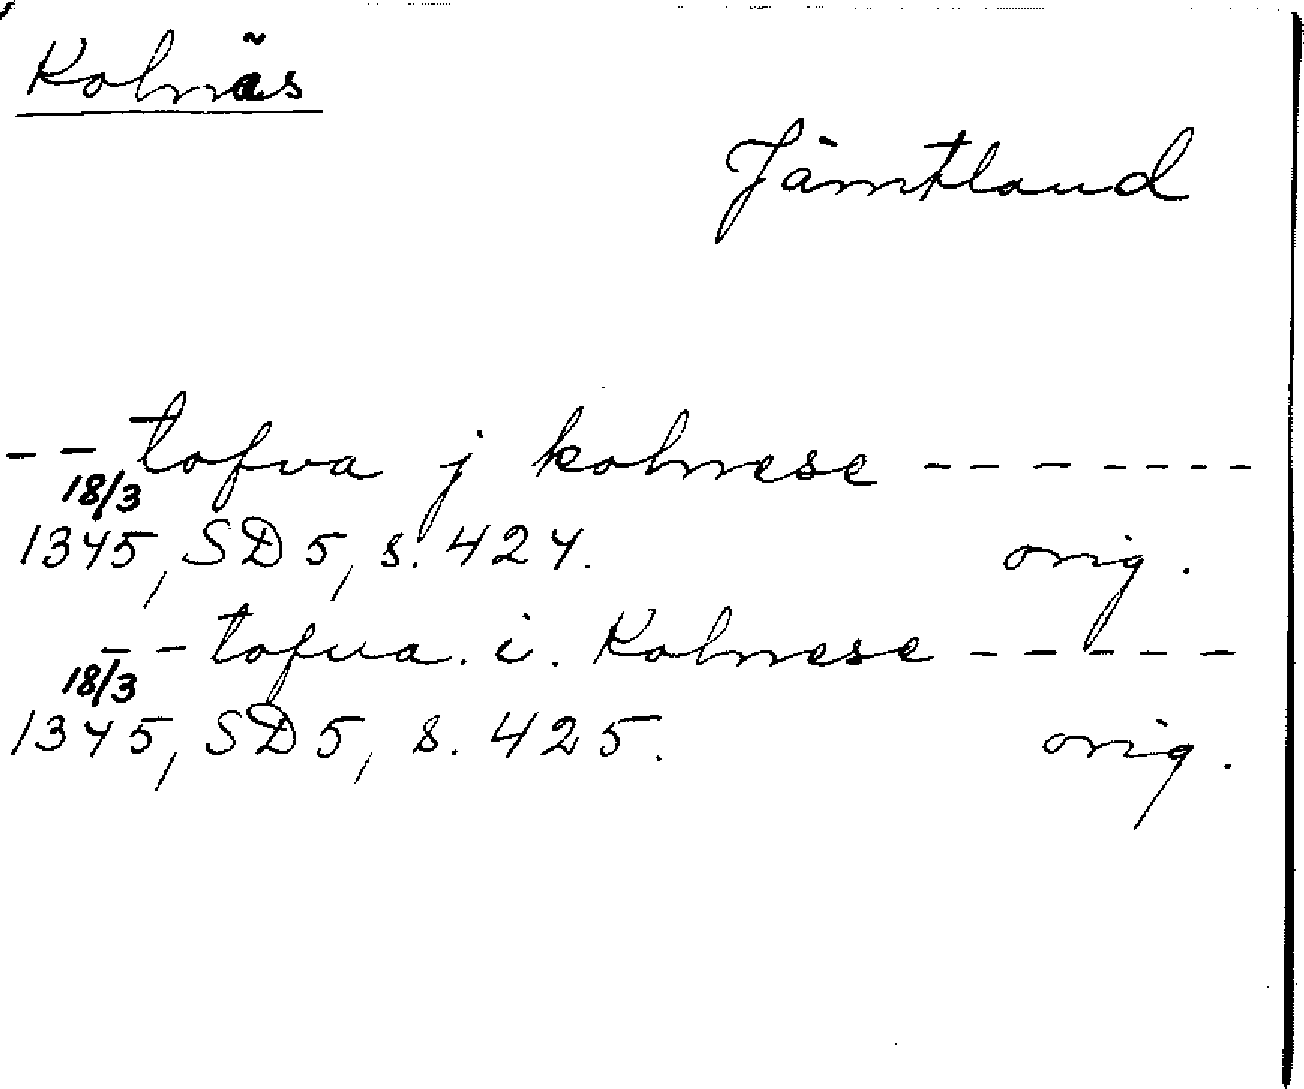 Kolnäs
Jämtland
-- tofva j kolnese -------
18/3
1345, SD 5, s. 424. orig.
-- tofua. i. Kolnese -----
18/3
1345, SD 5, s. 425. orig.